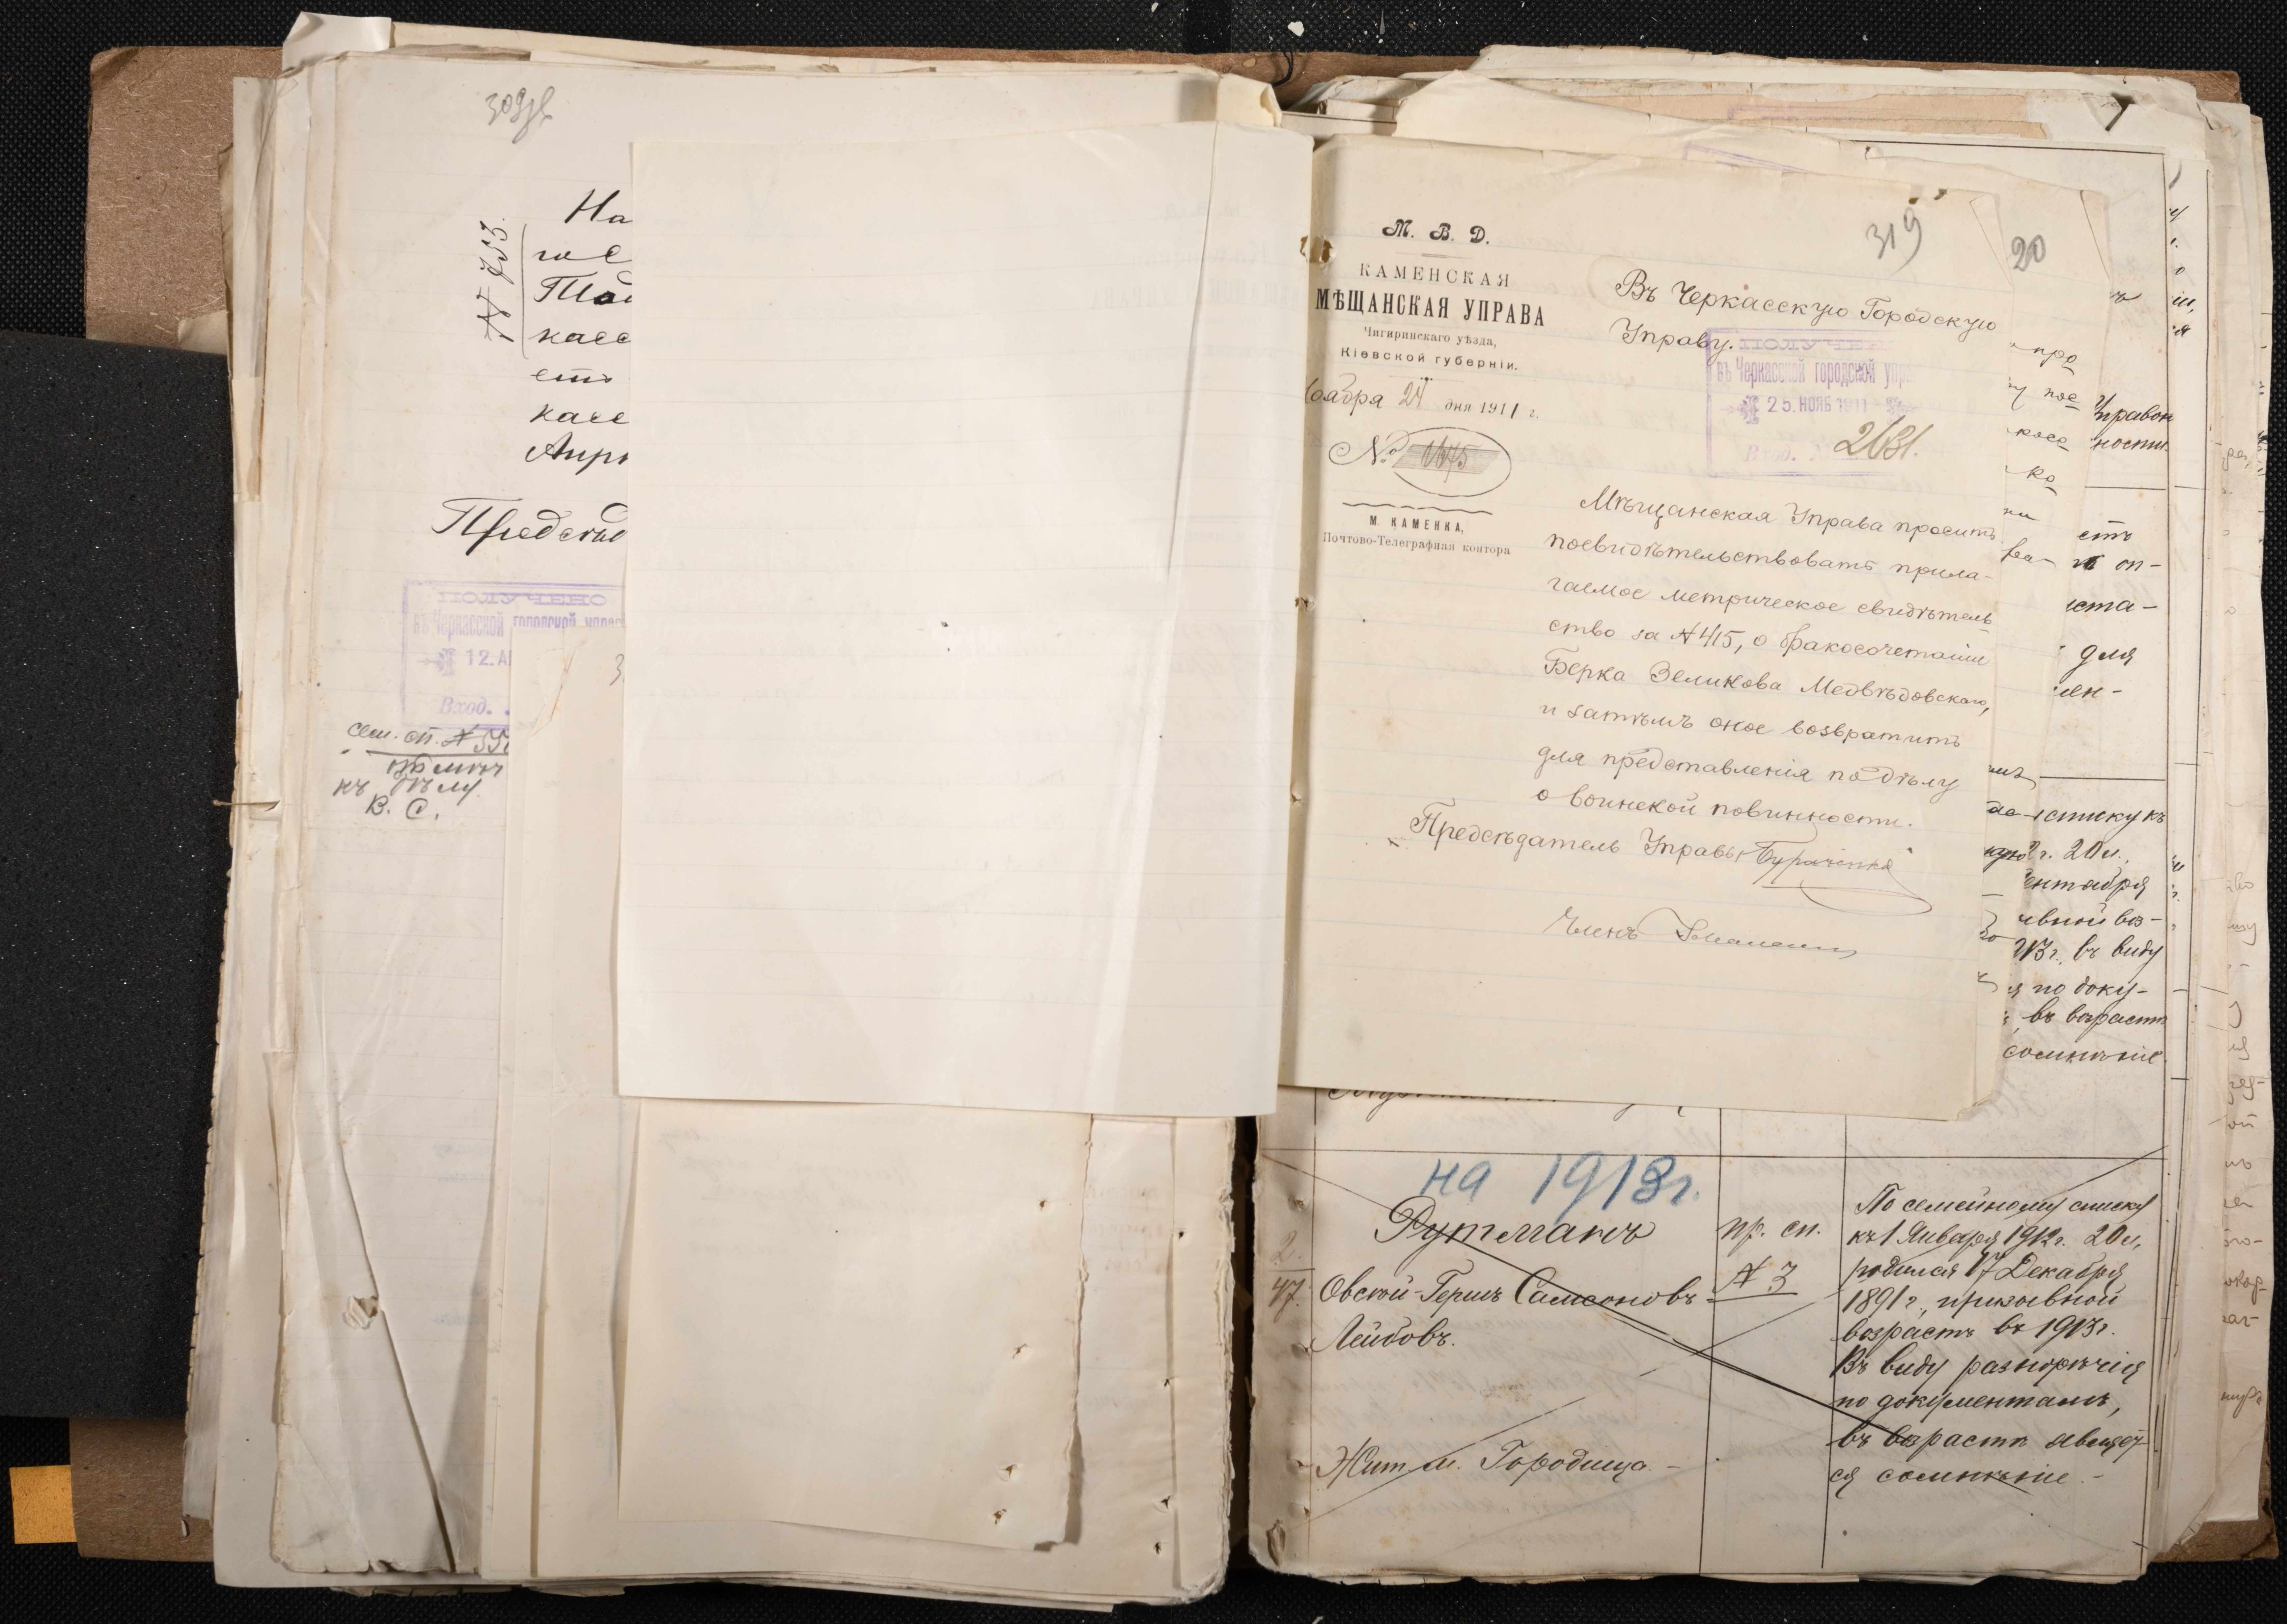 309
На
№ 753.
касс
Апр
Предсѣд
ПОЛУЧЕНО
въ Черкасской городской управ
12. АП
Вход.
Сем. сп. №
къ дѣлу
В. С.
319
М. В. Д.
КАМЕНСКАЯ
МѢЩАНСКАЯ УПРАВА
Чигиринскаго уѣзда,
Кіевской губерніи.
оября 24 дня 1911 г.
№ 1675
М. КАМЕНКА,
Почтово-Телеграфная контора
Въ Черкасскую Городскую
Управу.
ПОЛУЧЕНО
въ Черкасской городской упр
25. НОЯБ 1911
Вход. № 2631.
Мѣщанская Управа проситъ
посвидѣтельствовать прила-
гаемое метрическое свидѣтель
ство за № 415, о бракосочетаніи
Берка Зеликова Медвѣдовскаго,
и затѣмъ оное возвратить
для представленія по дѣлу
о воинской повинности.
Предсѣдатель Управы
Членъ
20
правой
ности.
сть
оп-
иста-
для
мен-
списку къ
г. 20 л.,
ентября
ывной воз-
1913 г., въ виду
по доку-
въ возрастѣ
сомнѣніе
на 1913 г.
Рутманъ
2.
47.
Овсей-Гершъ Самсоновъ-
Лейбовъ.
Жит. м. Городища.-
пр. сп.
№ 3
По семейному списку
къ 1 Января 1912 г. 20 л.,
родился 17 Декабря
1891 г., призывной
возрастъ въ 1913 г.
Въ виду разнорѣчія
по документамъ,
въ возрастѣ являет-
ся сомнѣніе.-